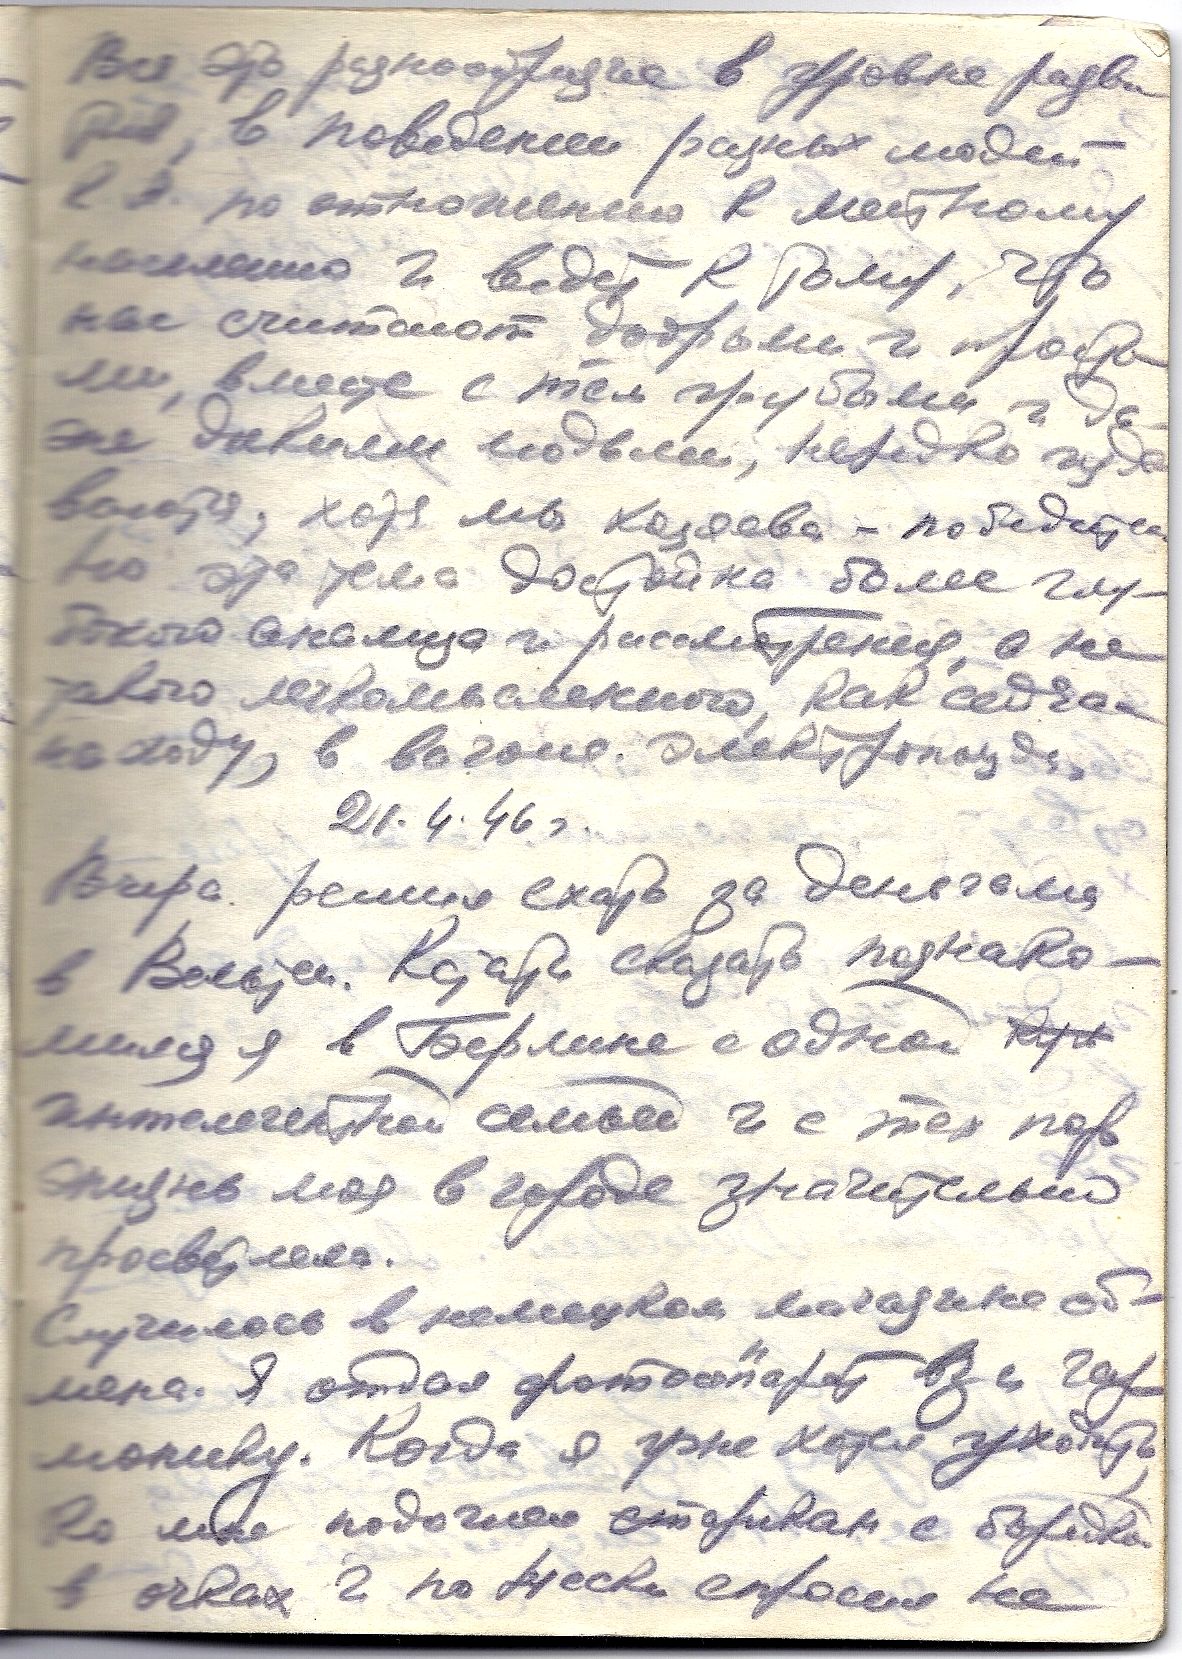 Все это разнообразие в уровне разви
тия, в поведении разных людей
К.А. по отношению к местному
населению и ведет к тому, что
нас считают добрыми и просты-
ми, вместе с тем грубыми и да-
же дикими людьми, нередко
хотя мы хозяева - победители
Но эта тема достойна более глу-
бокого анализа и рассмотрения, а не
такого легкомысленного, как сейчас
на ходу, в вагоне электропоезда.
21.4.46 г.
Вчера решил ехать за деньгами
в Вельтен. Кстати сказать познако-
мился я в Берлине с одной
интелегентной семьей и с тех пор
жизнь моя в городе значительно
просветлела.
Случилось в немецком магазине об-
мена. Я отдал фотоаппарат взял гар
монику. Когда я уже хотел уходить,
ко мне подошел старикан с бородкой
в очках и по спросил не